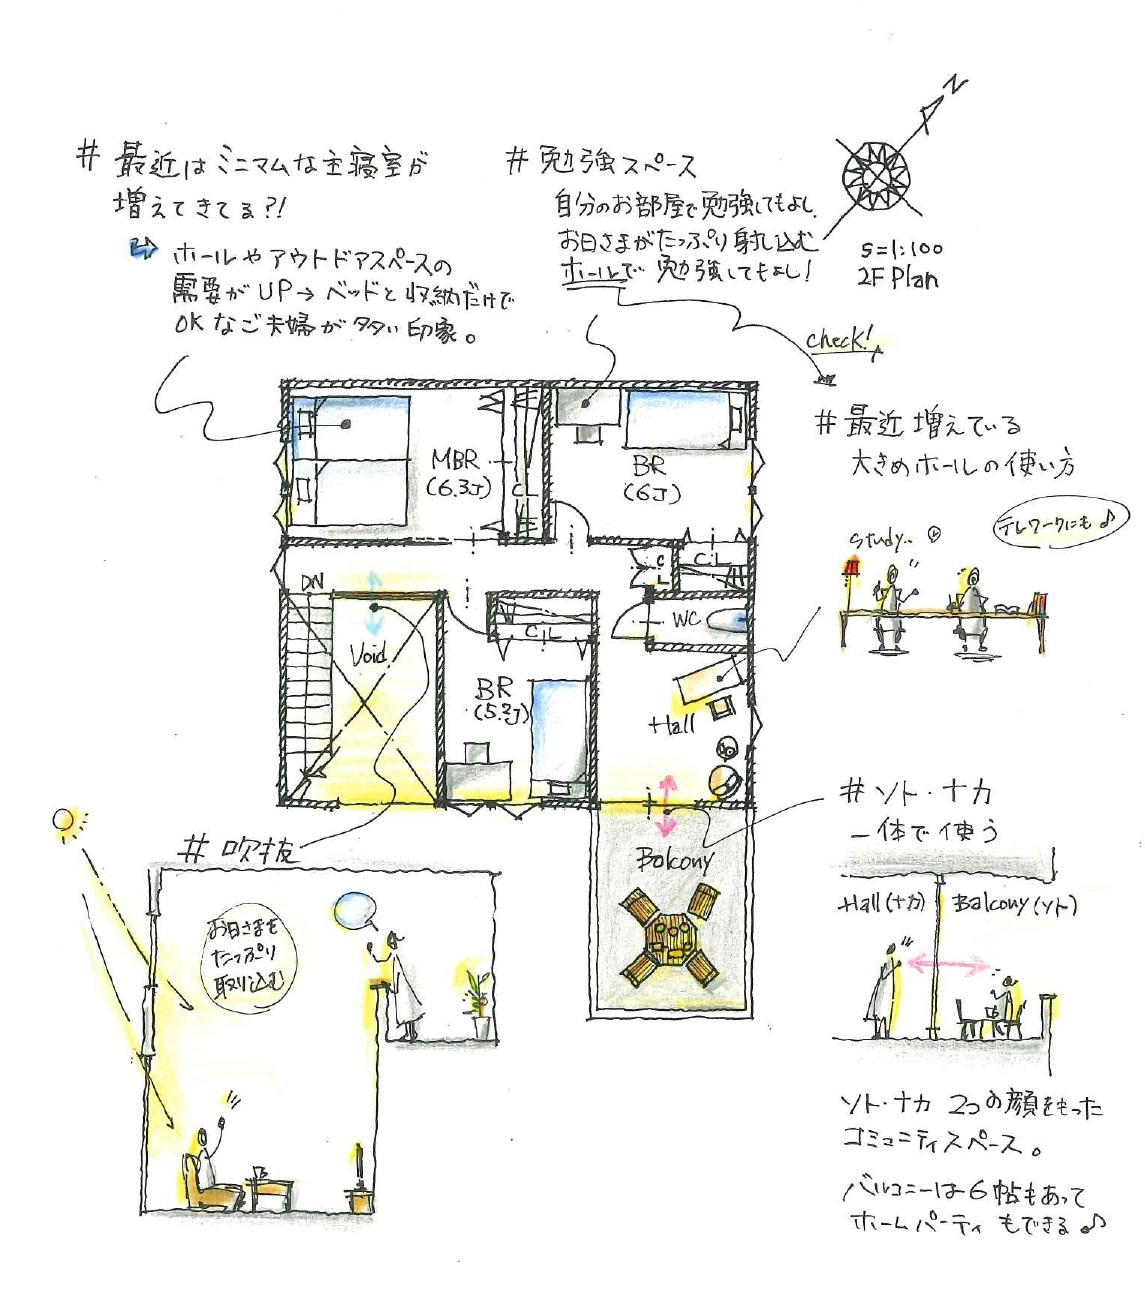 # 最近はミニマムな主寝室が
増えてきてる?!
ホールやアウトドアスペースの
需要がUP→ベッドと収納だけで
OKなご夫婦が多い印象。
# 勉強スペース
自分のお部屋で勉強してもよし、
お日さまがたっぷり射し込む
ホールで勉強してもよし!
N
S=1:100
2F Plan
check!
# 最近増えている
大きめホールの使い方
テレワークにも♪
study..
MBR
(6.3J)
CL
BR
(6J)
CL
CL
DN
WC
Void
CL
BR
(5.2J)
Hall
Balcony
# 吹抜
お日さまを
たっぷり
取り込む
# ソト・ナカ
一体で使う
Hall(ナカ)
Balcony(ソト)
ソト・ナカ 2つの顔をもった
コミュニティスペース。
バルコニーは6帖もあって
ホームパーティもできる♪